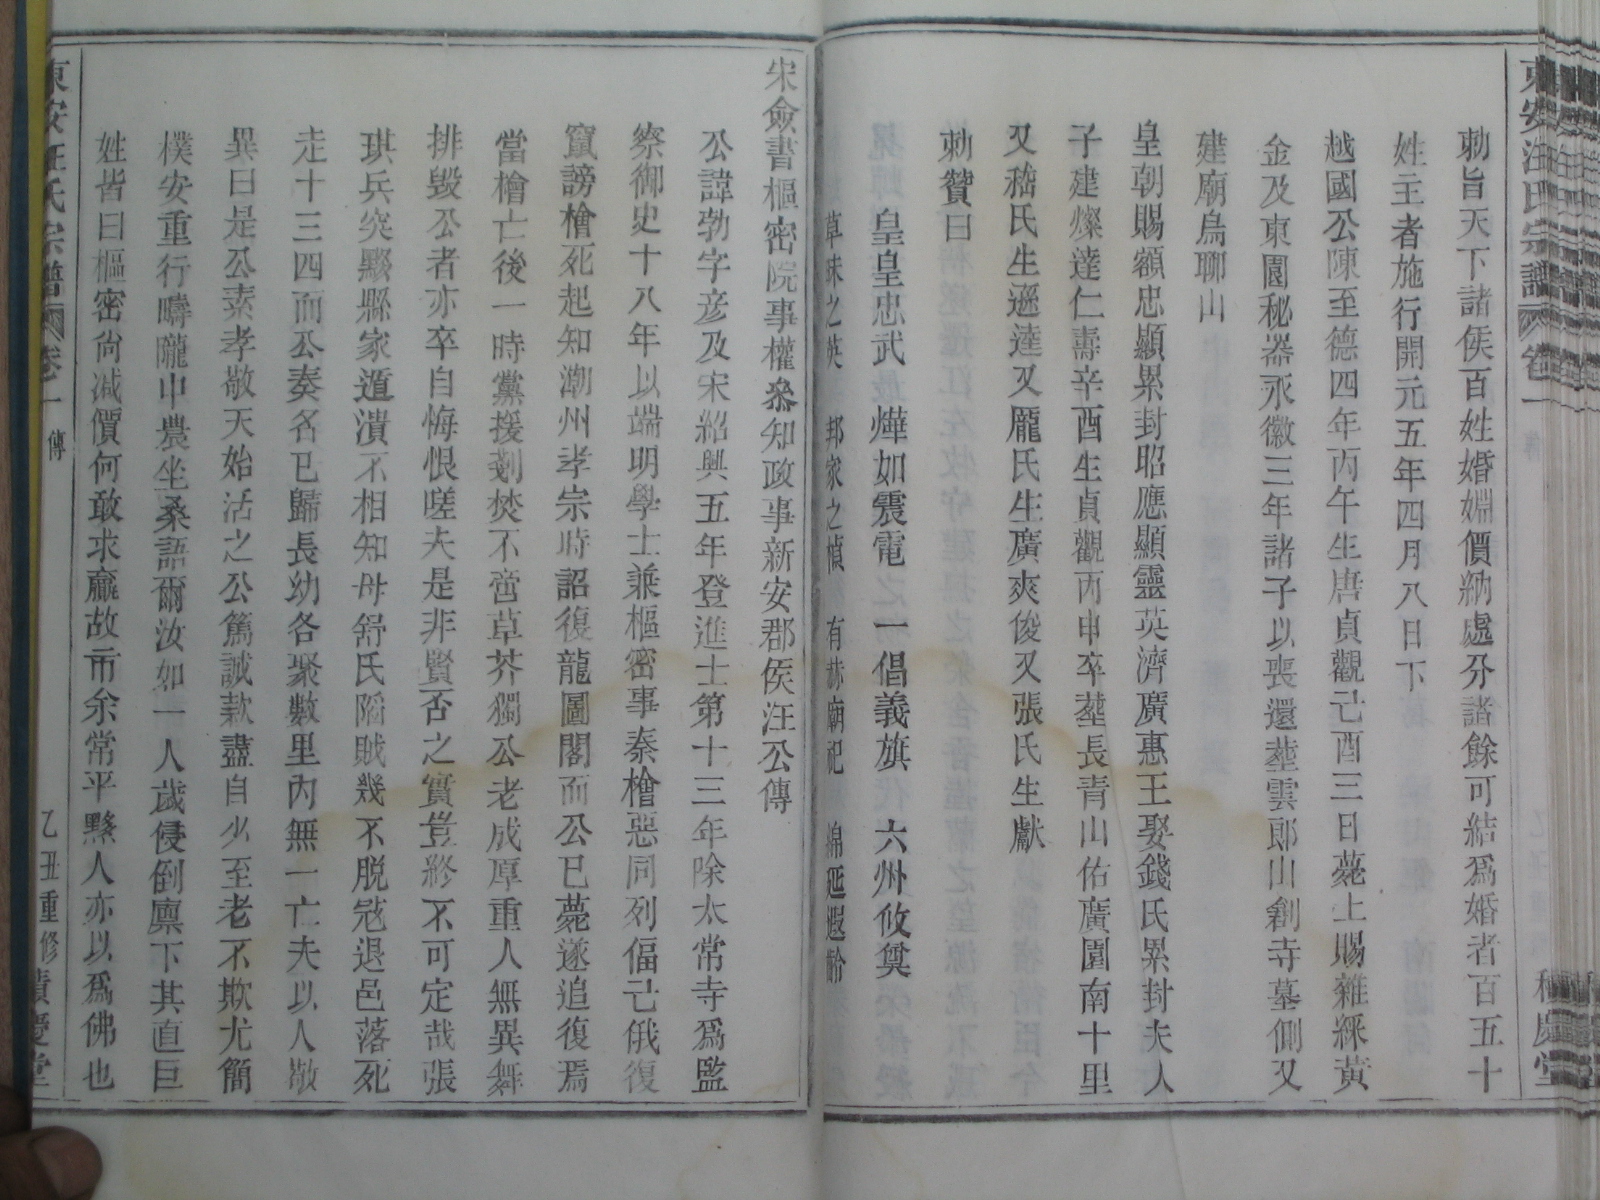 東安汪氏宗譜 卷一 傳 積慶堂
勅旨天下諸侯百姓婚姻價納處分諸餘可結爲婚者百五十
姓主者施行開元五年四月八日下
越國公陳至德四年丙午生唐貞觀己酉三日薨上賜雜綵黃
金及東園秘器永徽三年諸子以喪還塟雲郎山創寺墓側又
建廟烏聊山
皇朝賜額忠顯累封昭應顯靈英濟廣惠王娶錢氏累封夫人
子建燦達仁壽辛酉生貞觀丙申卒塟長青山佑廣園南十里
又嵇氏生遜達又龐氏生廣爽俊又張氏生獻
勅贊曰
皇皇忠武 燁如震電 一倡義旗 六州攸奠
草昧之英 邦家之楨 有赫廟祀 綿延遐齡
宋僉書樞密院事權叅知政事新安郡侯汪公傳
公諱勃字彥及宋紹興五年登進士第十三年除太常寺爲監
察御史十八年以端明學士兼樞密事秦檜惡同列偪己俄復
竄謗檜死起知潮州孝宗時詔復龍圖閣而公已薨遂追復焉
當檜亡後一時黨援剗焚不啻草芥獨公老成厚重人無異舞
排毀公者亦卒自悔恨嗟夫是非賢否之實豈終不可定哉張
琪兵突黟縣家遁潰不相知母舒氏䧟賊幾不脫尅退邑落死
走十三四而公奏名已歸長幼各聚數里內無一亡夫以人敵
異曰是公素孝敬天始活之公篤誠欵盡自少至老不欺尤簡
樸安重行疇隴中農坐桑語爾汝如一人歲侵倒廪下其直巨
姓皆曰樞密尙減價何敢求贏故市余常平黟人亦以爲佛也
東安汪氏宗譜 卷一 傳 乙丑重修 積慶堂